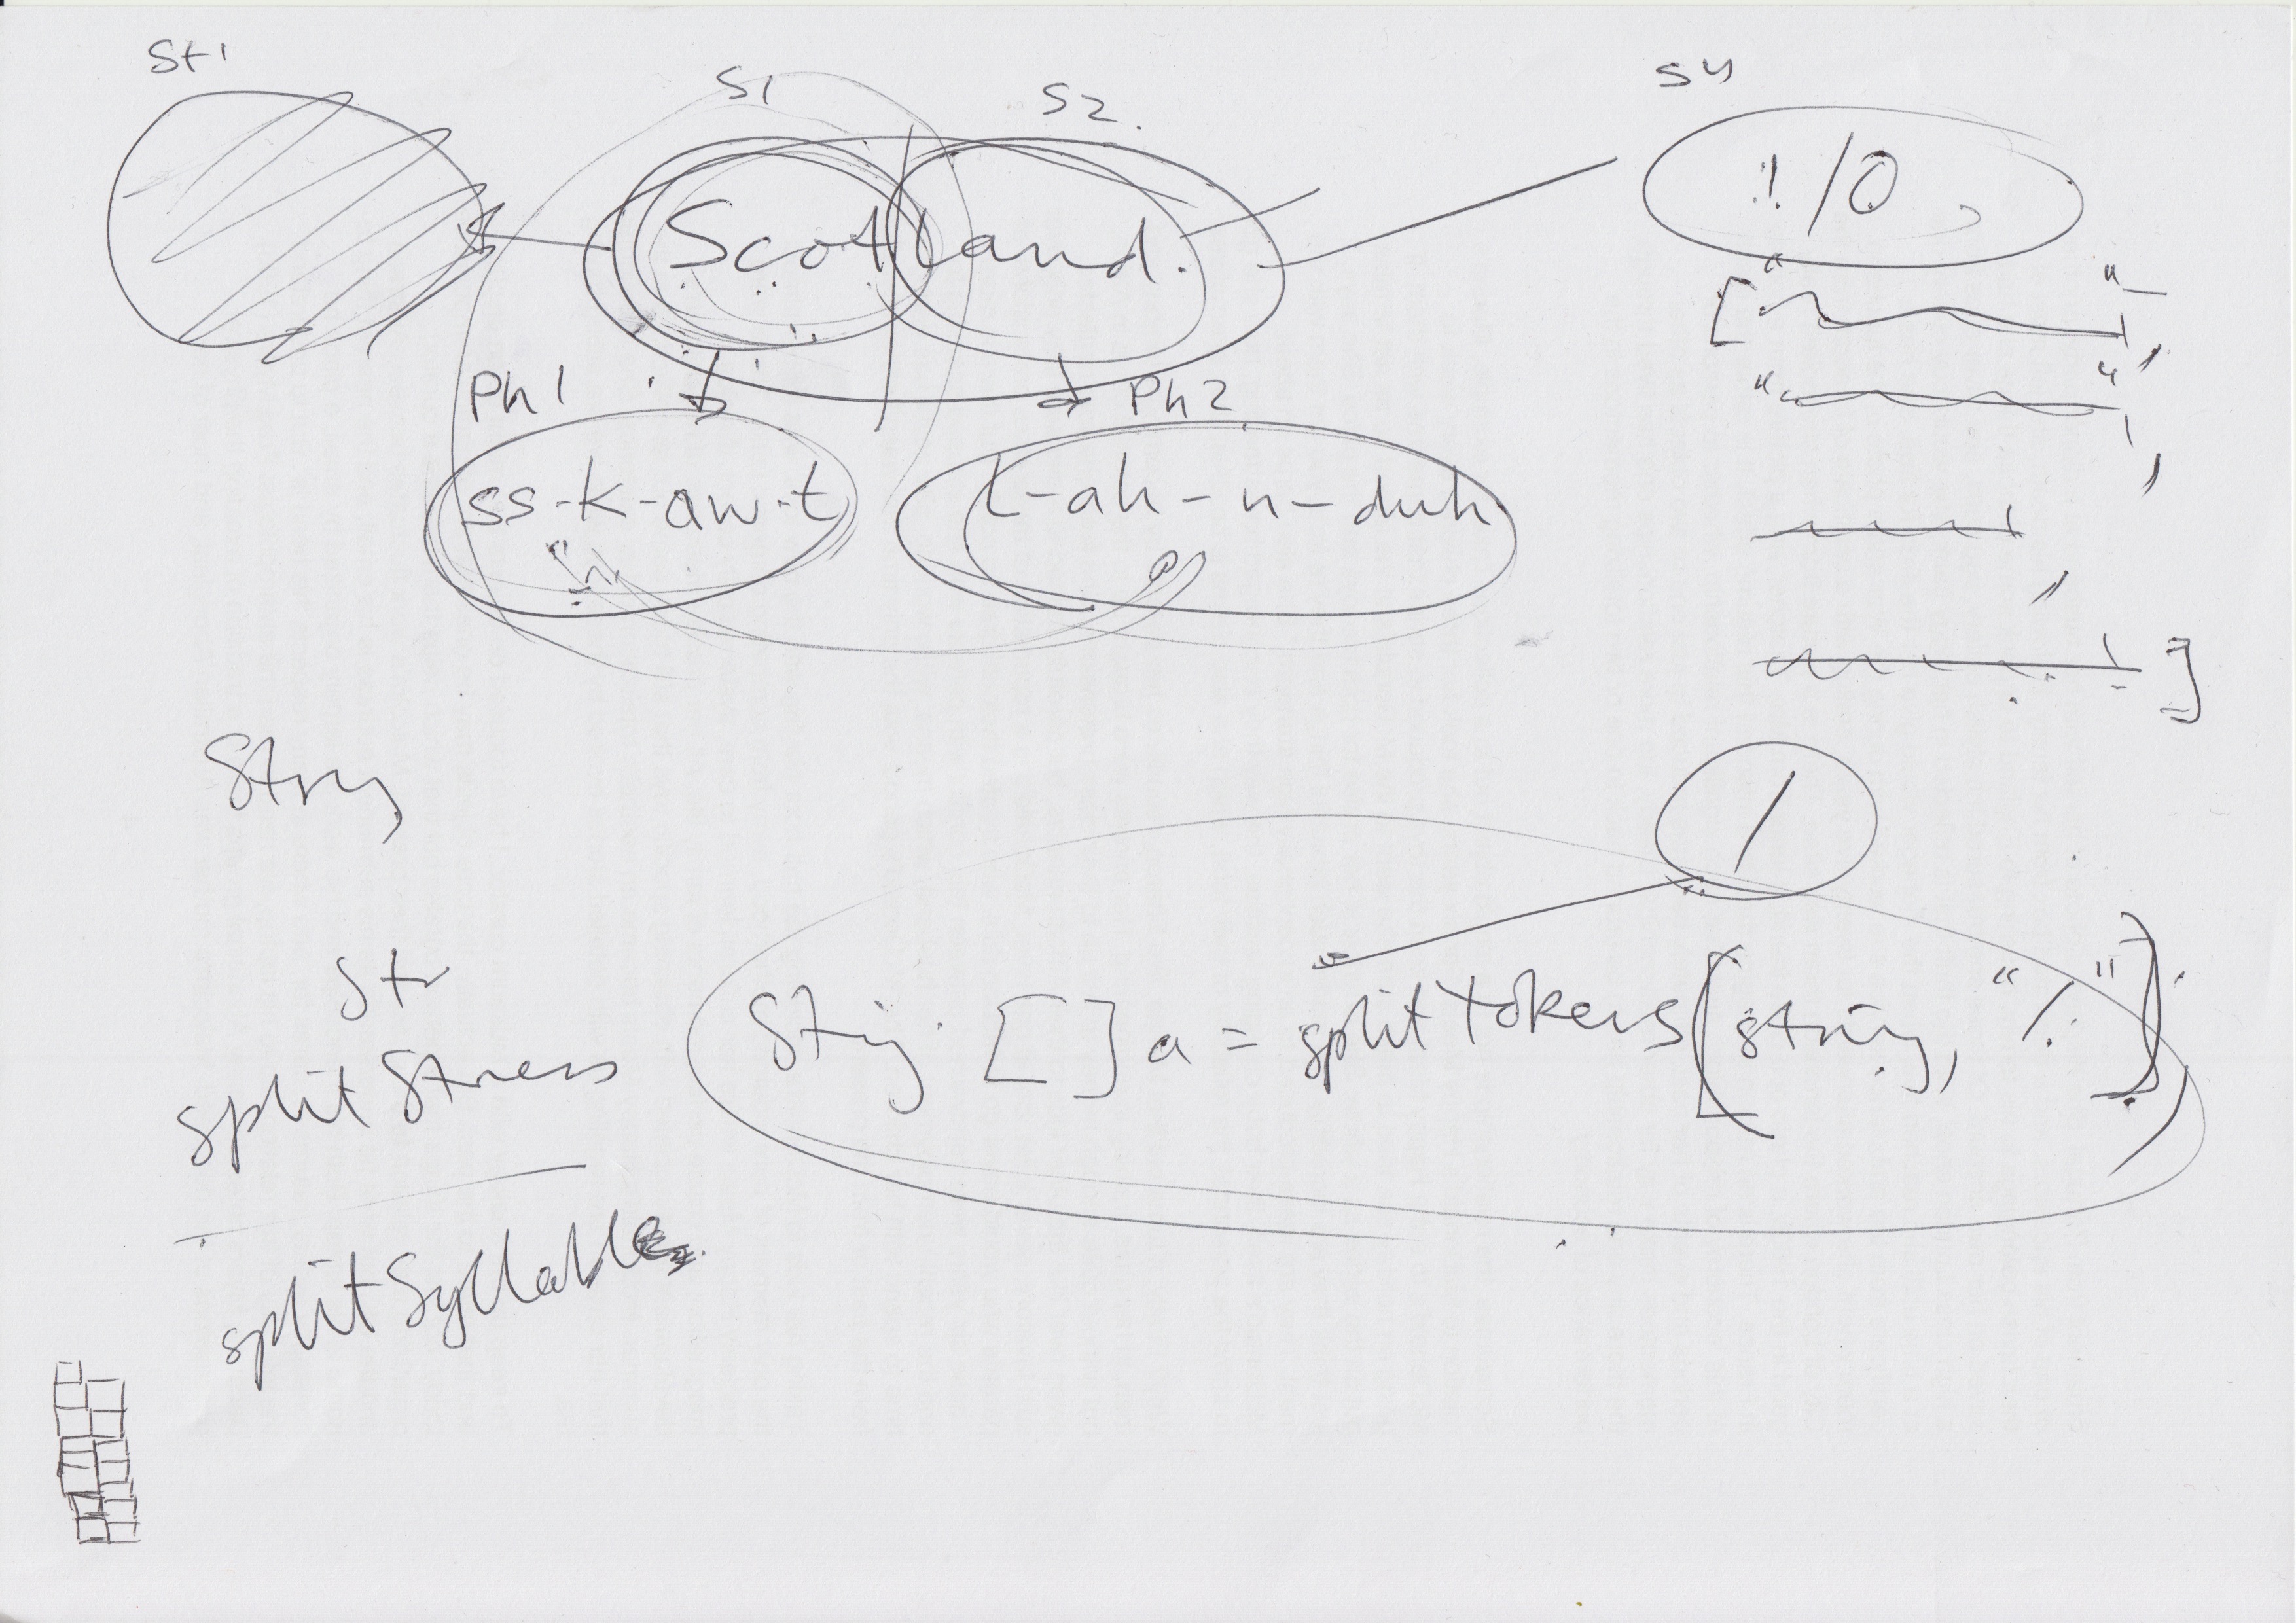 St1
S1
S2.
S4
Scotland.
! / 0
Ph1
Ph2
ss-k-aw-t
l-ah-n-duh
/
Str
String [] a = splitTokens(string, "/");
splitStress
splitSyllable